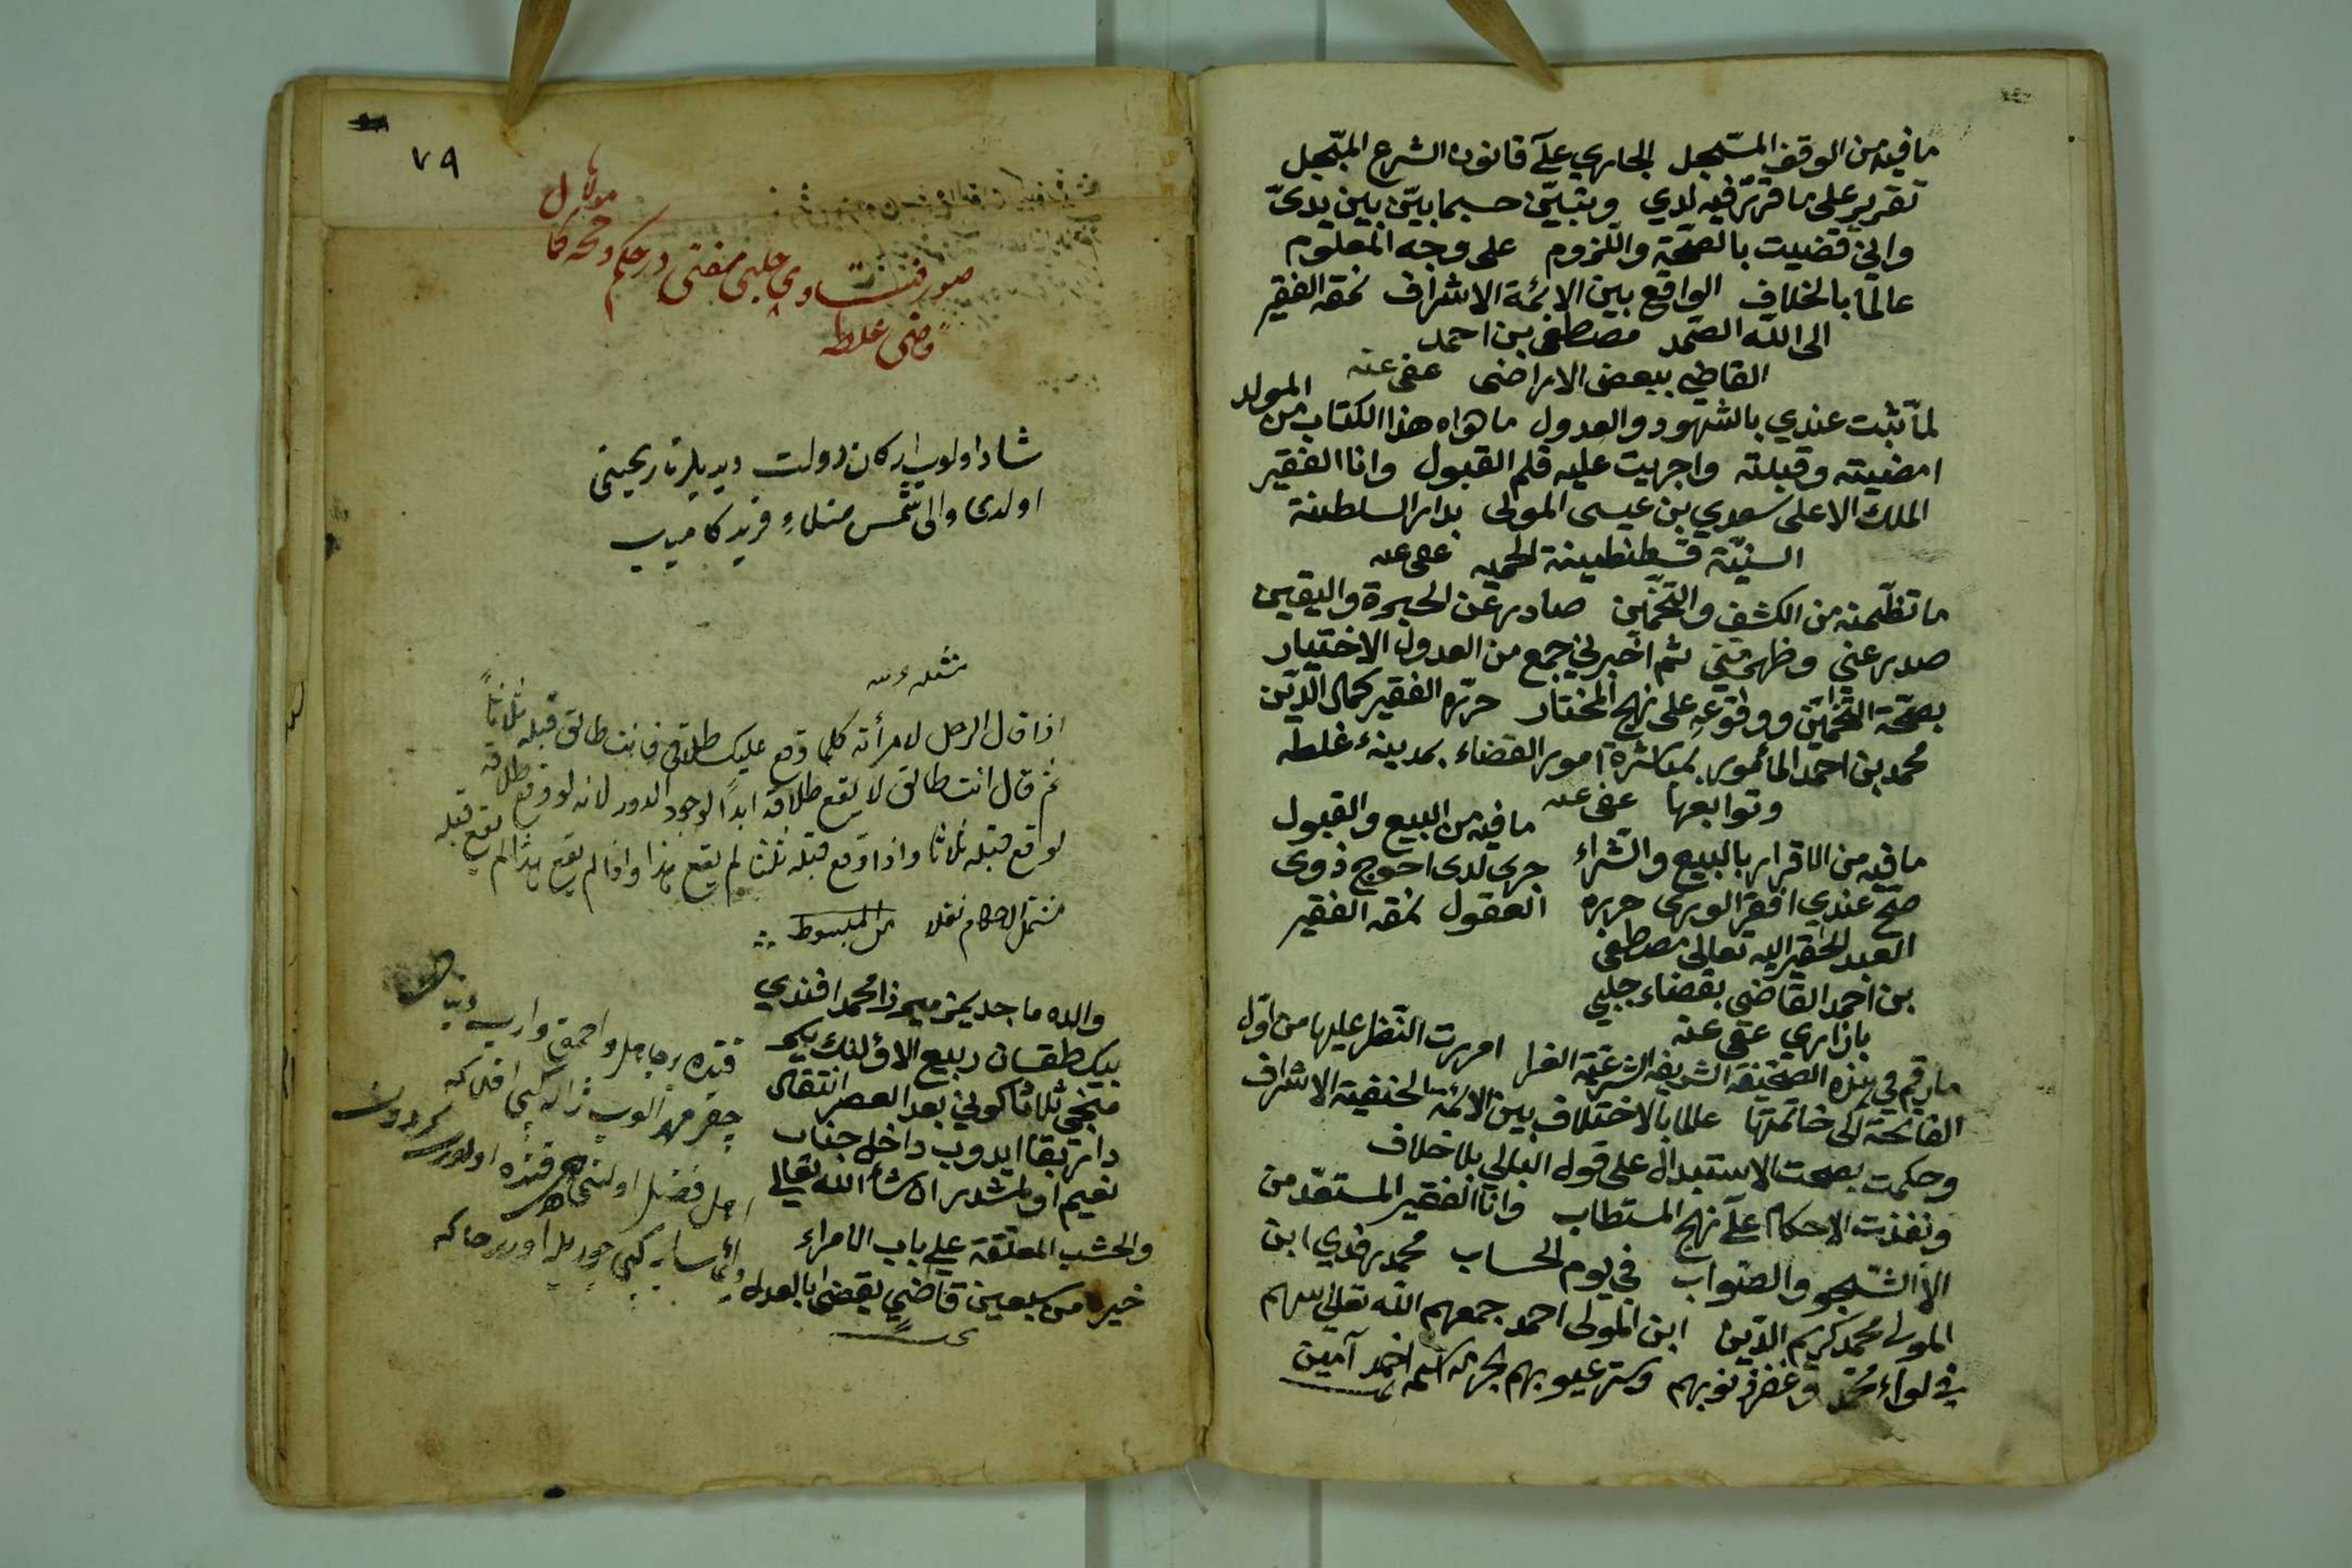 ما فيه من الوقف المسجل الجاري على قانون الشرع المبجل
تقرير على ما قرر فيه لدي وتبين حسبما بين بين يدي
واني قضيت بالصحة واللزوم على وجه المعلوم
عالما بالخلاف الواقع بين الائمة الاشراف نمقه الفقير
الى الله الصمد مصطفى بن احمد
القاضي ببعض الاراضى عفى عنه
لما ثبت عندي بالشهود والعدول ما حواه هذا الكتاب من المولد
امضيته وقبلته واجريت عليه قلم القبول وانا الفقير
الملك الاعلى سعدي بن عيسى المولى بدار السلطنة
السنية قسطنطينة المحميه عفى عنه
ما تظمنه من الكشف والتخمين صادر عن الحبرة واليقين
صدر عني وظهر مني ثم اخبرني جمع من العدول الاختيار
بصحة التخمين ووقوعه على نهج المختار حرره الفقير كمال الدين
محمد بن احمد المأمور بمباشرة امور القضاء بمدينة غلطه
وتوابعها عفى عنه
ما فيه من الاقرار بالبيع والشراء
صح عندي افقر الورى حرره
العبد الحقير اليه تعالى مصطفى
بن احمد القاضي بقضاء جلبي
بازاري عفى عنه
ما فيه من البيع والقبول
جرى لدى احوج ذوى
العقول نمقه الفقير
ما رقم في هذه الصحيفة الشريفة الشرعية الغرا امررت النظر عليها من اول
الفاتحة الى خاتمتها عالما بالاختلاف بين الائمة الحنفية الاشراف
وحكمت بصحت الاستبدال على قول البالي بلا خلاف
ونفذت الاحكام على نهج المستطاب وانا الفقير المستعد من
الا والصواب في يوم الحساب محمد ابن
المولى محمد كريم الدين ابن المولى احمد جمعهم الله تعالى
في لواء محمد وغفر ذنوبهم وستر عيوبهم بحرمة اسم احمد آمين
٧٩
صور فتاوى جلبى مفتى در حكم وحجه
قاضى غلطه
شاد اولوب اركان دولت ديديلر تاريخينى
اولدى والى شمس منلاء فريد كامياب
اذا قال الرجل لامرأته كلما وقع عليك طلاقي فانت طالق قبله ثلاثاً
ثم قال انت طالق لا يقع طلاقه ابداً لوجود الدور لانه لو وقع طلاقه
لوقع قبله ثلاثا واذا وقع قبله ثلثا لم يقع هذا واذا لم يقع هذا لم يقع قبله
مشتمل الاحكام نقلا من المبسوط
والده ماجديمز ميرزا محمد افندي
بيك طقسان ربيع الاولنك يكرمى
منجى ثلاثا كوني بعد العصر انتقال
دار بقا ايدوب داخل جناب
نعيم اولمشدر ان شاء الله تعالى
والخشب المعلقة على باب الامراء
خير من سبعين قاضي يقضى بالعدل
قنده بر جاهل و احمق وار
چقر مهر الوب ژاله كبى افلاكه
اهل فضل اولنى هر قنده اولورسه كردون
دائما سايه كبى